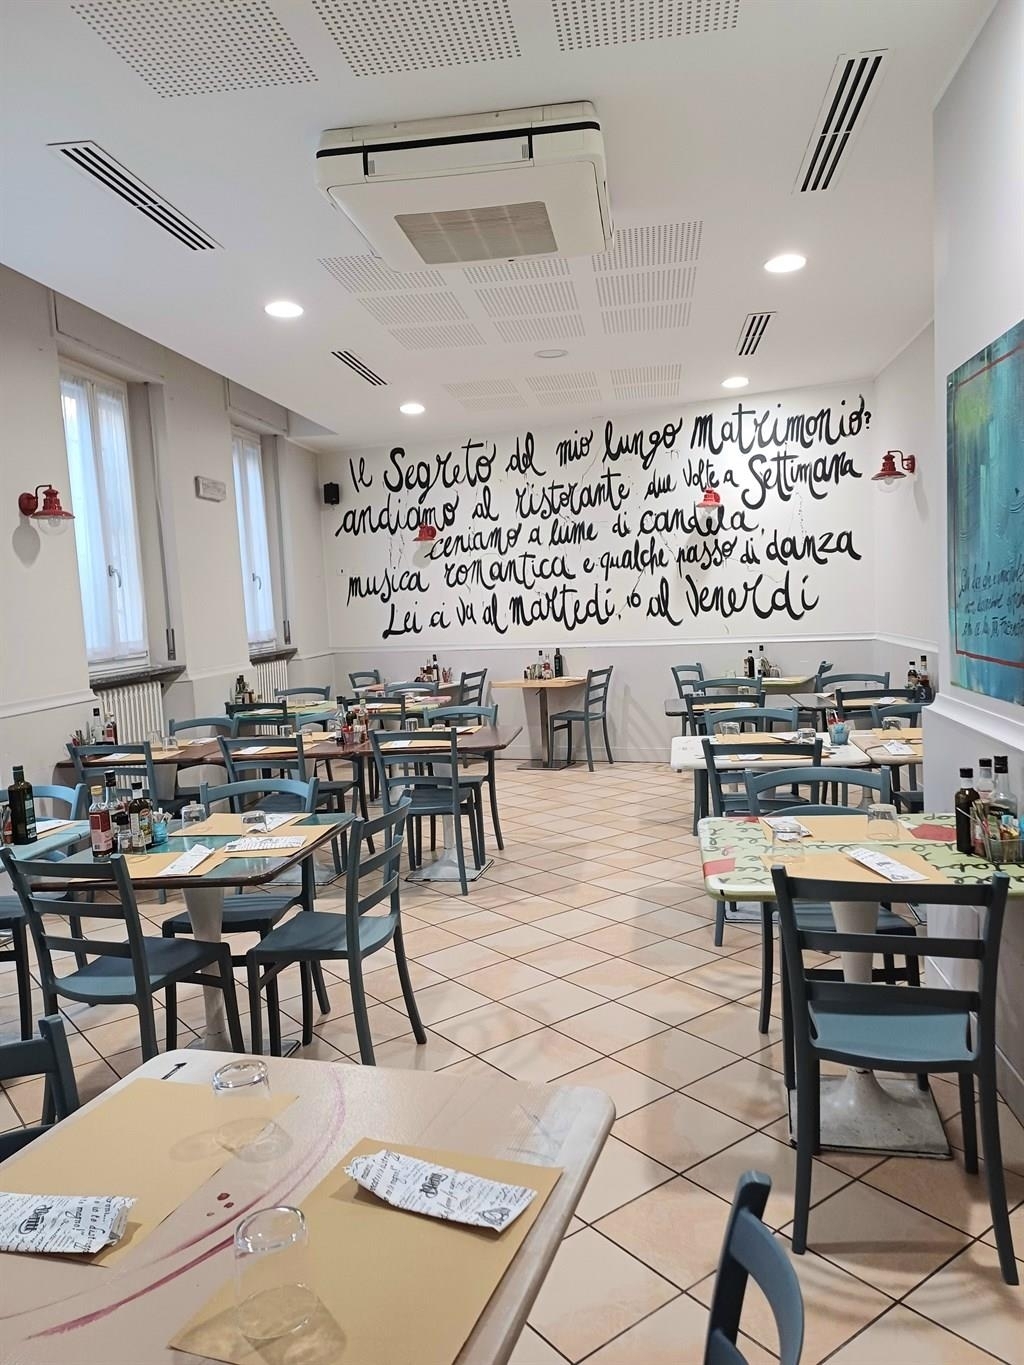 Il Segreto del mio lungo matrimonio?
andiamo al ristorante due volte a Settimana
ceniamo a lume di candela,
musica romantica e qualche passo di danza
Lei ci va al martedì, io al Venerdì